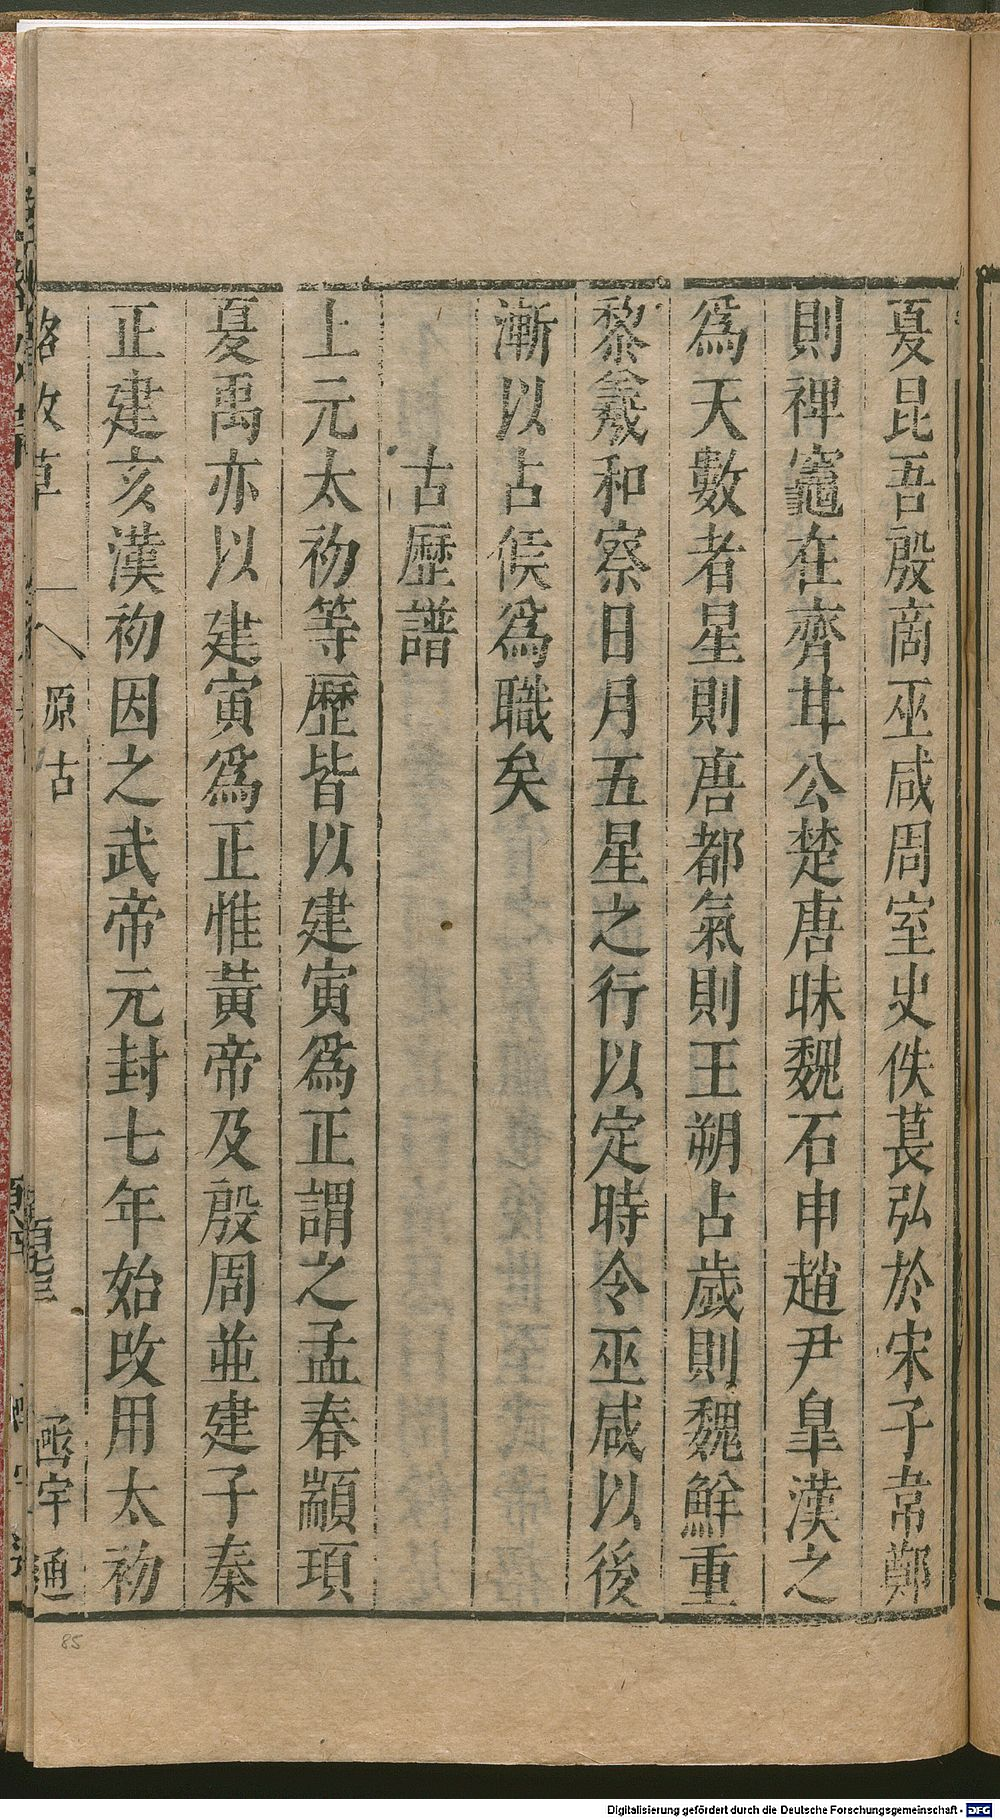 夏昆吾殷商巫咸周室史佚萇弘於宋子韋鄭
則裨竈在齊甘公楚唐昧魏石申趙尹臯漢之
爲天數者星則唐都氣則王朔占歲則魏鮮重
黎羲和察日月五星之行以定時令巫咸以後
漸以占候爲職矣
古歷譜
上元太初等歷皆以建寅爲正謂之孟春顓頊
夏禹亦以建寅爲正惟黃帝及殷周並建子秦
正建亥漢初因之武帝元封七年始改用太初
格致草
原古
函宇通
85
Digitalisierung gefördert durch die Deutsche Forschungsgemeinschaft - DFG